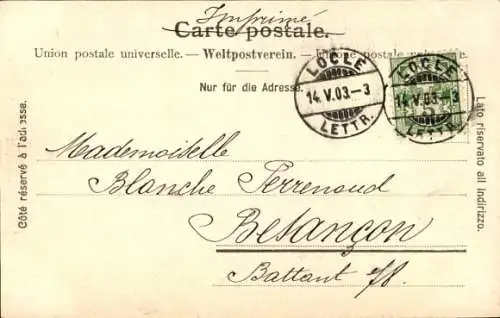 Imprimé
Carte postale.
Union postale universelle. — Weltpostverein. — Unione postale universale.
Nur für die Adresse.
LOCLE
14.V.03-3
LETTR.
LOCLE
14.V.03-3
LETTR.
Côté réservé à l'adresse.
Lato riservato all indirizzo.
Mademoiselle
Blanche Perrenoud
Besançon
Battant